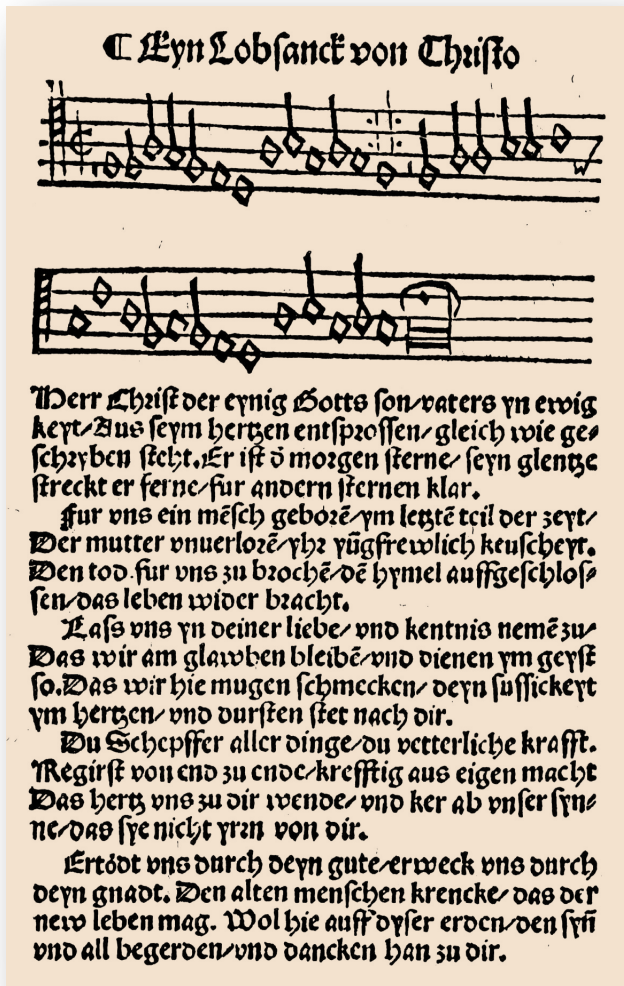 ¶ Eyn Lobsanck von Christo
Herr Christ der eynig Gotts son/vaters yn ewig
keyt/Aus seym hertzen entsprossen/gleich wie ge⸗
schryben steht.Er ist ð morgen sterne/seyn glentze
streckt er ferne/fur andern sternen klar.
Fur vns ein mēsch geborē/ym letztē teil der zeyt/
Der mutter vnuerlorē/yhr yūgfrewlich keuscheyt.
Den tod fur vns zu brochē/dē hymel auffgeschlos⸗
sen/das leben wider bracht.
Lass vns yn deiner liebe/vnd kentnis nemē zu/
Das wir am glawben bleibē/vnd dienen ym geyst
so.Das wir hie mugen schmecken/deyn sussickeyt
ym hertzen/vnd dursten stet nach dir.
Du Schepffer aller dinge/du vetterliche krafft.
Regirst von end zu ende/krefftig aus eigen macht
Das hertz vns zu dir wende/vnd ker ab vnser syn⸗
ne/das sye nicht yrrn von dir.
Ertödt vns durch deyn gute/erweck vns durch
deyn gnadt. Den alten menschen krencke/das der
new leben mag. Wol hie auff dyser erden/den syn̄
vnd all begerden/vnd dancken han zu dir.